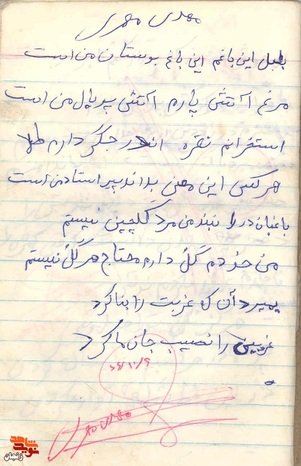 مهدی مهری
بلبل این باغم این باغ بوستان من است
مرغ آتشی پارم آتشی پر و بال من است
استخوانم نقره اندر جگر دارم طلا
هر کس این معنی بداند پیر استاد من است
باغبان در را نبند من مرد گلچین نیستم
من خودم گل دارم محتاج هر گل نیستم
بمیرد آن که غربت را بنا کرد
غریبی را نصیب جان ما کرد
شاهد
نوید